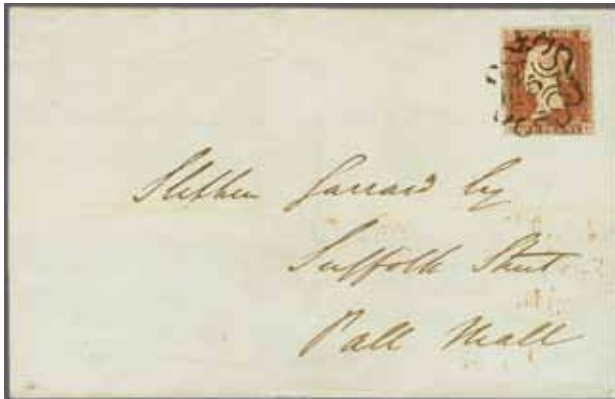 Stephen Garrard Esq
Suffolk Street
Pall Mall